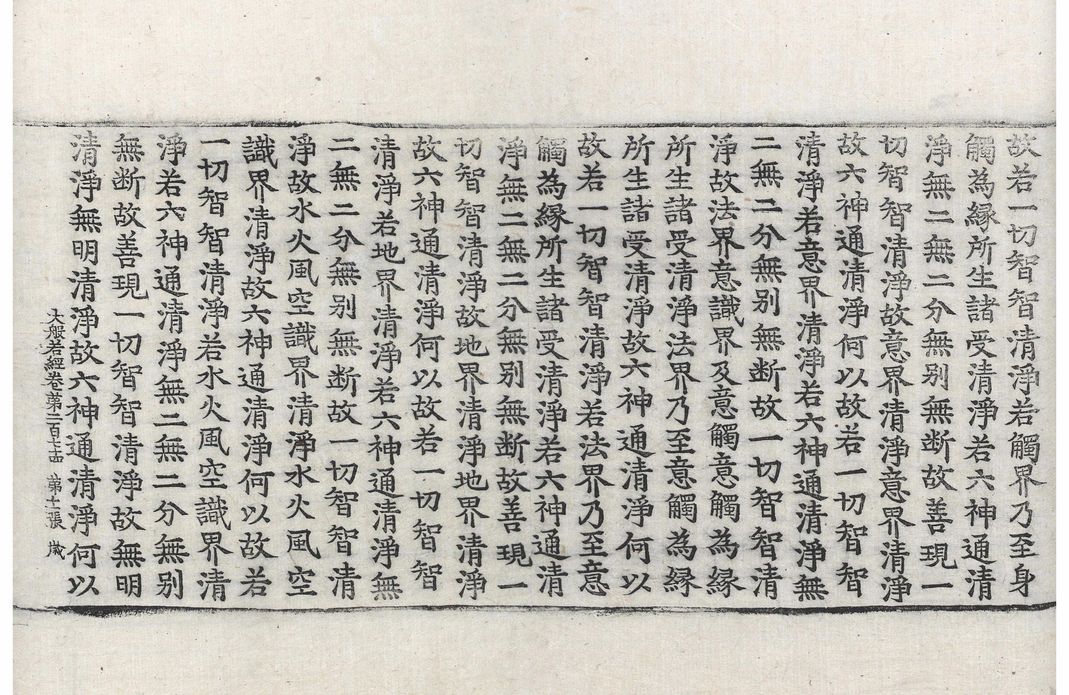 故若一切智智清淨若觸界乃至身
觸為縁所生諸受清淨若六神通清
淨無二無二分無别無断故善現一
切智智清淨故意界清淨意界清淨
故六神通清淨何以故若一切智智
清淨若意界清淨若六神通清淨無
二無二分無别無断故一切智智清
淨故法界意識界及意觸意觸為縁
所生諸受清淨法界乃至意觸為縁
所生諸受清淨故六神通清淨何以
故若一切智智清淨若法界乃至意
觸為縁所生諸受清淨若六神通清
淨無二無二分無别無断故善現一
切智智清淨故地界清淨地界清淨
故六神通清淨何以故若一切智智
清淨若地界清淨若六神通清淨無
二無二分無别無断故一切智智清
淨故水火風空識界清淨水火風空
識界清淨故六神通清淨何以故若
一切智智清淨若水火風空識界清
淨若六神通清淨無二無二分無别
無断故善現一切智智清淨故無明
清淨無明清淨故六神通清淨何以
大般若經卷第二百 第 張